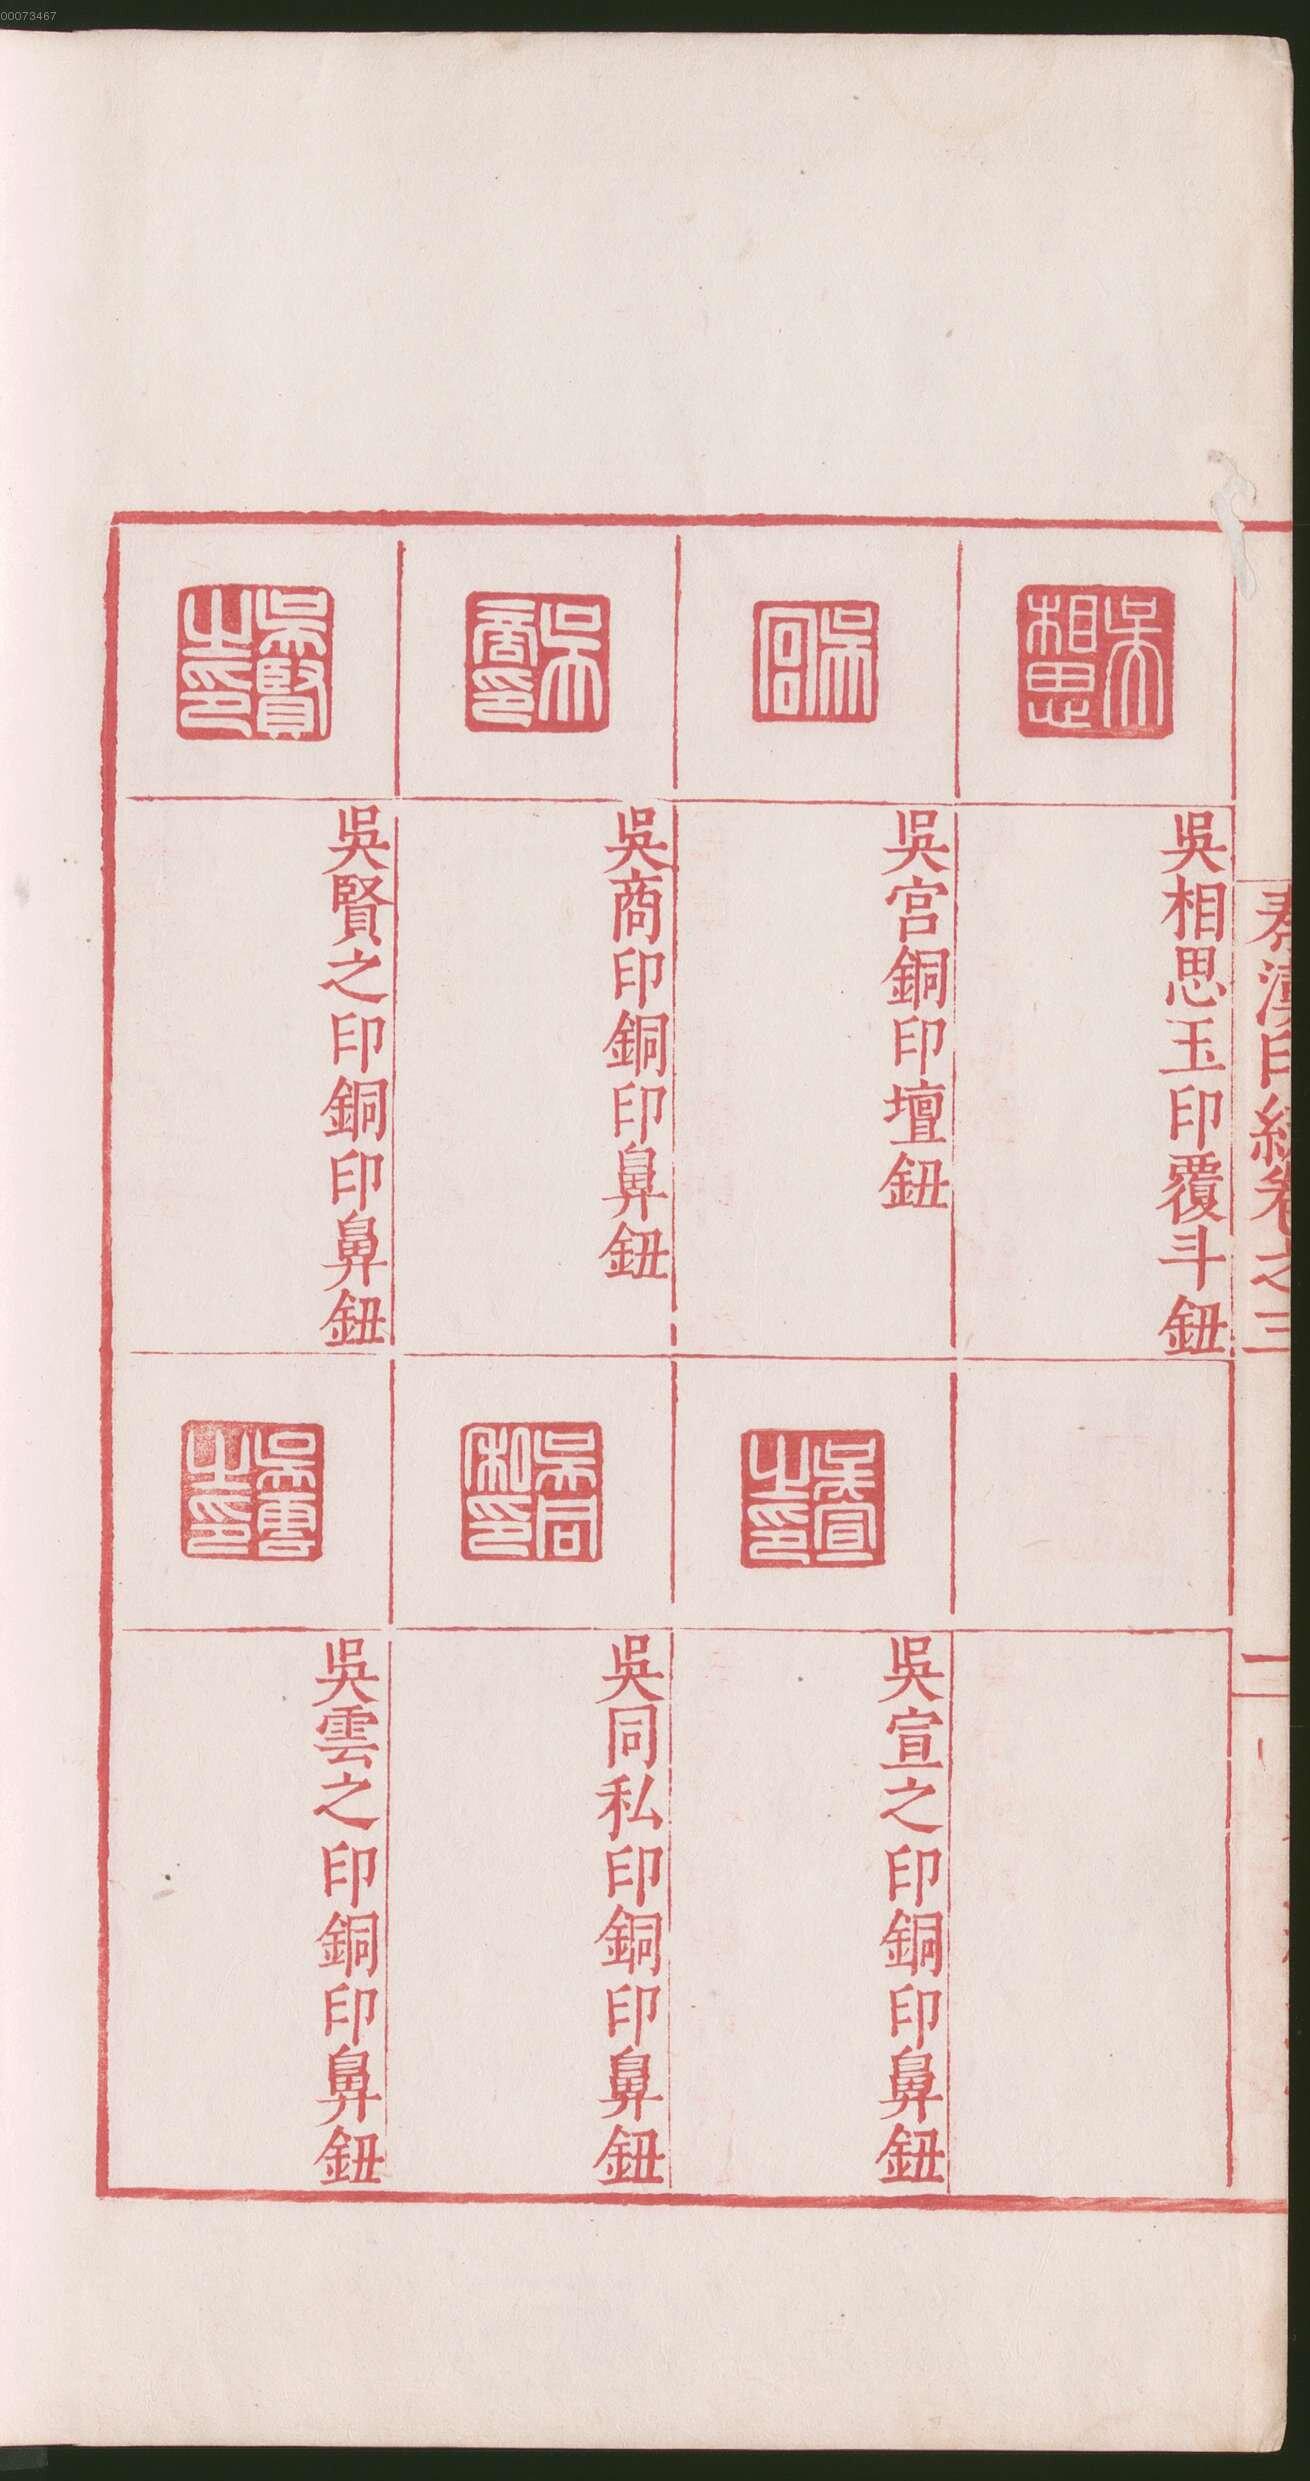 00073467
秦漢印統卷之三
吳相思
吳相思玉印覆斗鈕
吳宮
吳宮銅印壇鈕
吳商印
吳商印銅印鼻鈕
吳賢之印
吳賢之印銅印鼻鈕
吳宣之印
吳宣之印銅印鼻鈕
吳同私印
吳同私印銅印鼻鈕
吳雲之印
吳雲之印銅印鼻鈕